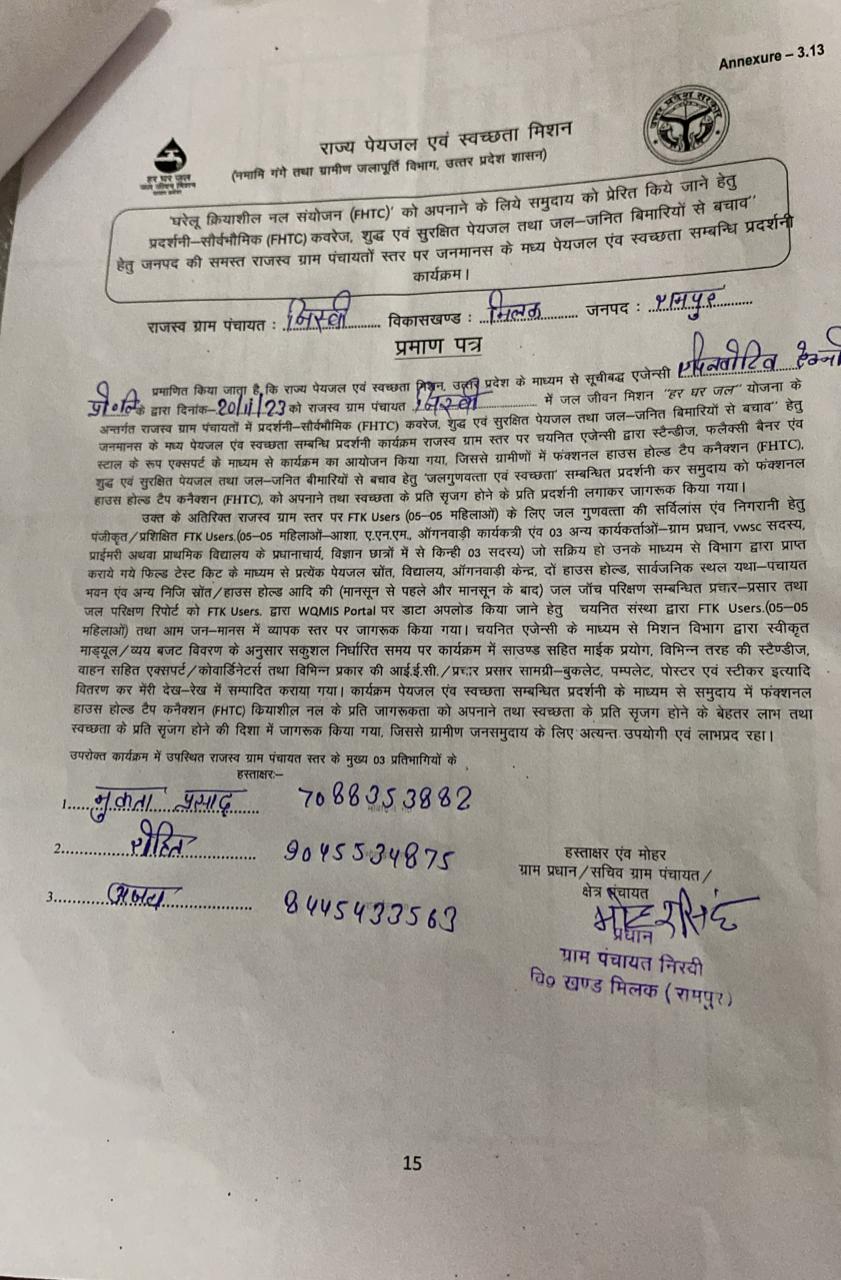 Annexure – 3.13
राज्य पेयजल एवं स्वच्छता मिशन
(नमामि गंगे तथा ग्रामीण जलापूर्ति विभाग, उत्तर प्रदेश शासन)
हर घर जल
जल जीवन मिशन
उत्तर प्रदेश सरकार
'घरेलू क्रियाशील नल संयोजन (FHTC)' को अपनाने के लिये समुदाय को प्रेरित किये जाने हेतु
प्रदर्शनी–सौर्वभौमिक (FHTC) कवरेज, शुद्ध एवं सुरक्षित पेयजल तथा जल–जनित बिमारियों से बचाव"
हेतु जनपद की समस्त राजस्व ग्राम पंचायतों स्तर पर जनमानस के मध्य पेयजल एंव स्वच्छता सम्बन्धि प्रदर्शनी
कार्यक्रम।
राजस्व ग्राम पंचायत : निरवी विकासखण्ड : मिलक जनपद : रामपुर
प्रमाण पत्र
प्रमाणित किया जाता है, कि राज्य पेयजल एवं स्वच्छता मिशन, उत्तर प्रदेश के माध्यम से सूचीबद्ध एजेन्सी
प्रा०लि० के द्वारा दिनांक–20/11/23 को राजस्व ग्राम पंचायत निरवी में जल जीवन मिशन "हर घर जल" योजना के
अन्तर्गत राजस्व ग्राम पंचायतों में प्रदर्शनी–सौर्वभौमिक (FHTC) कवरेज, शुद्ध एवं सुरक्षित पेयजल तथा जल–जनित बिमारियों से बचाव" हेतु
जनमानस के मध्य पेयजल एंव स्वच्छता सम्बन्धि प्रदर्शनी कार्यक्रम राजस्व ग्राम स्तर पर चयनित एजेन्सी द्वारा स्टैन्डीज, फलैक्सी बैनर एंव
स्टाल के रूप एक्सपर्ट के माध्यम से कार्यक्रम का आयोजन किया गया, जिससे ग्रामीणों में फंक्शनल हाउस होल्ड टैप कनैक्शन (FHTC),
शुद्ध एवं सुरक्षित पेयजल तथा जल–जनित बीमारियों से बचाव हेतु 'जलगुणवत्ता एवं स्वच्छता' सम्बन्धित प्रदर्शनी कर समुदाय को फंक्शनल
हाउस होल्ड टैप कनैक्शन (FHTC), को अपनाने तथा स्वच्छता के प्रति सृजग होने के प्रति प्रदर्शनी लगाकर जागरूक किया गया।
उक्त के अतिरिक्त राजस्व ग्राम स्तर पर FTK Users (05–05 महिलाओं) के लिए जल गुणवत्ता की सर्विलांस एंव निगरानी हेतु
पंजीकृत/प्रशिक्षित FTK Users.(05–05 महिलाओं–आशा, ए.एन.एम., ऑगनवाड़ी कार्यकत्री एंव 03 अन्य कार्यकर्ताओं–ग्राम प्रधान, vwsc सदस्य,
प्राईमरी अथवा प्राथमिक विद्यालय के प्रधानाचार्य, विज्ञान छात्रों में से किन्ही 03 सदस्य) जो सक्रिय हो उनके माध्यम से विभाग द्वारा प्राप्त
कराये गये फिल्ड टेस्ट किट के माध्यम से प्रत्येक पेयजल स्रोंत, विद्यालय, ऑगनवाड़ी केन्द्र, दों हाउस होल्ड, सार्वजनिक स्थल यथा–पंचायत
भवन एंव अन्य निजि स्रोंत/हाउस होल्ड आदि की (मानसून से पहले और मानसून के बाद) जल जॉच परिक्षण सम्बन्धित प्रचार–प्रसार तथा
जल परिक्षण रिपोर्ट को FTK Users. द्वारा WQMIS Portal पर डाटा अपलोड किया जाने हेतु चयनित संस्था द्वारा FTK Users.(05–05
महिलाओं) तथा आम जन–मानस में व्यापक स्तर पर जागरूक किया गया। चयनित एजेन्सी के माध्यम से मिशन विभाग द्वारा स्वीकृत
माड्यूल/व्यय बजट विवरण के अनुसार सकुशल निर्धारित समय पर कार्यक्रम में साउण्ड सहित माईक प्रयोग, विभिन्न तरह की स्टैण्डीज,
वाहन सहित एक्सपर्ट/कोवार्डिनेटर्स तथा विभिन्न प्रकार की आई.ई.सी./प्रचार प्रसार सामग्री–बुकलेट, पम्पलेट, पोस्टर एवं स्टीकर इत्यादि
वितरण कर मेंरी देख–रेख में सम्पादित कराया गया। कार्यक्रम पेयजल एंव स्वच्छता सम्बन्धित प्रदर्शनी के माध्यम से समुदाय में फंक्शनल
हाउस होल्ड टैप कनैक्शन (FHTC) कियाशील नल के प्रति जागरूकता को अपनाने तथा स्वच्छता के प्रति सृजग होने के बेहतर लाभ तथा
स्वच्छता के प्रति सृजग होने की दिशा में जागरूक किया गया, जिससे ग्रामीण जनसमुदाय के लिए अत्यन्त उपयोगी एवं लाभप्रद रहा।
उपरोक्त कार्यक्रम में उपस्थित राजस्व ग्राम पंचायत स्तर के मुख्य 03 प्रतिभागियों के
हस्ताक्षर:–
1..... मुकता प्रसाद 7088353882
2..... रोहित 9045534875
3..... अजय 8445433563
हस्ताक्षर एंव मोहर
ग्राम प्रधान/सचिव ग्राम पंचायत/
क्षेत्र पंचायत
प्रधान
ग्राम पंचायत निरवी
वि० खण्ड मिलक (रामपुर)
15